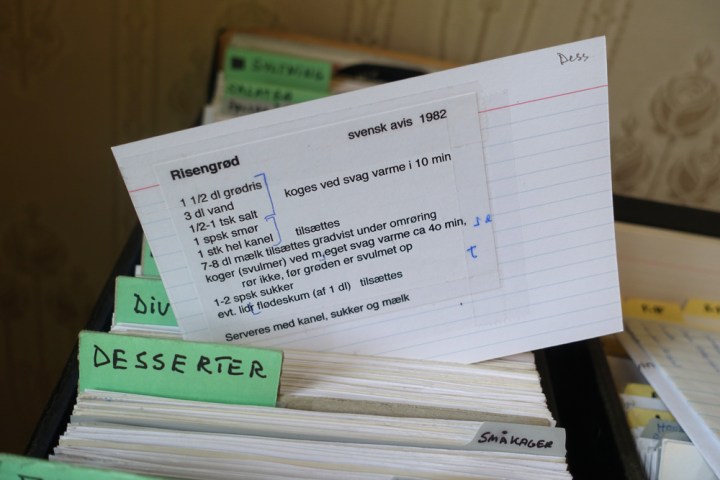 Dess
svensk avis 1982
Risengrød
1 1/2 dl grødris
3 dl vand
1/2-1 tsk salt
koges ved svag varme i 10 min
1 spsk smør
1 stk hel kanel
tilsættes
7-8 dl mælk tilsættes gradvist under omrøring
koger (svulmer) ved meget svag varme ca 4o min,
rør ikke, før grøden er svulmet op
1-2 spsk sukker
evt. lidt flødeskum (af 1 dl) tilsættes
Serveres med kanel, sukker og mælk
DIV
DESSERTER
SMÅKAGER